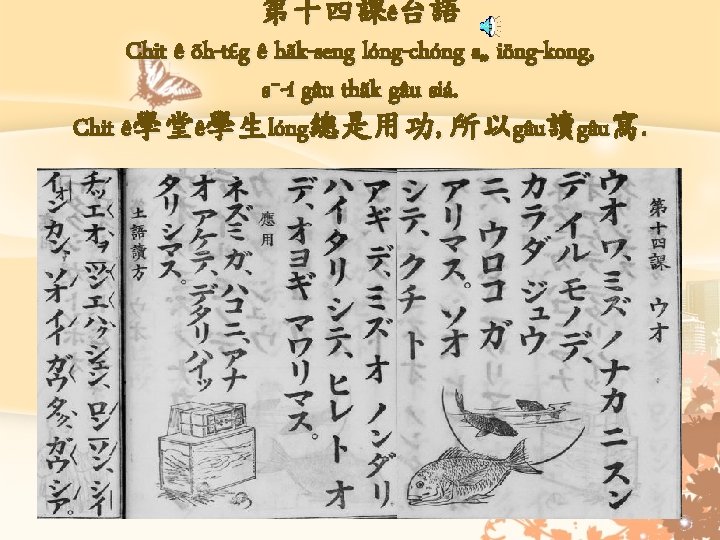 第十四課ê台語
Chit ê ōh-t£g ê hãk-seng lóng-chóng s„ iōng-kong,
s¯-í gâu thãk gâu siá.
Chit ê學堂ê學生lóng總是用功, 所以gâu讀gâu寫.
第十四課 ウオ
ウオ ワ、ミズ ノ ナカ ニ スン
デ イル モノ デ、
カラダ ジュウ
ニ、ウロコ ガ
アリマス。ソオ
シテ、クチ ト
アギ デ、ミズ オ ノンダリ
ハイタリ シテ、ヒレ ト オ
デ、オヨギ マワリマス。
應用
ネズミ ガ、ハコ ニ、アナ
オ アケテ、デタリ ハイッ
タリ シマス。
土語讀方
イオン カン、ソオ イイ ガウ タク、ガウ シア。